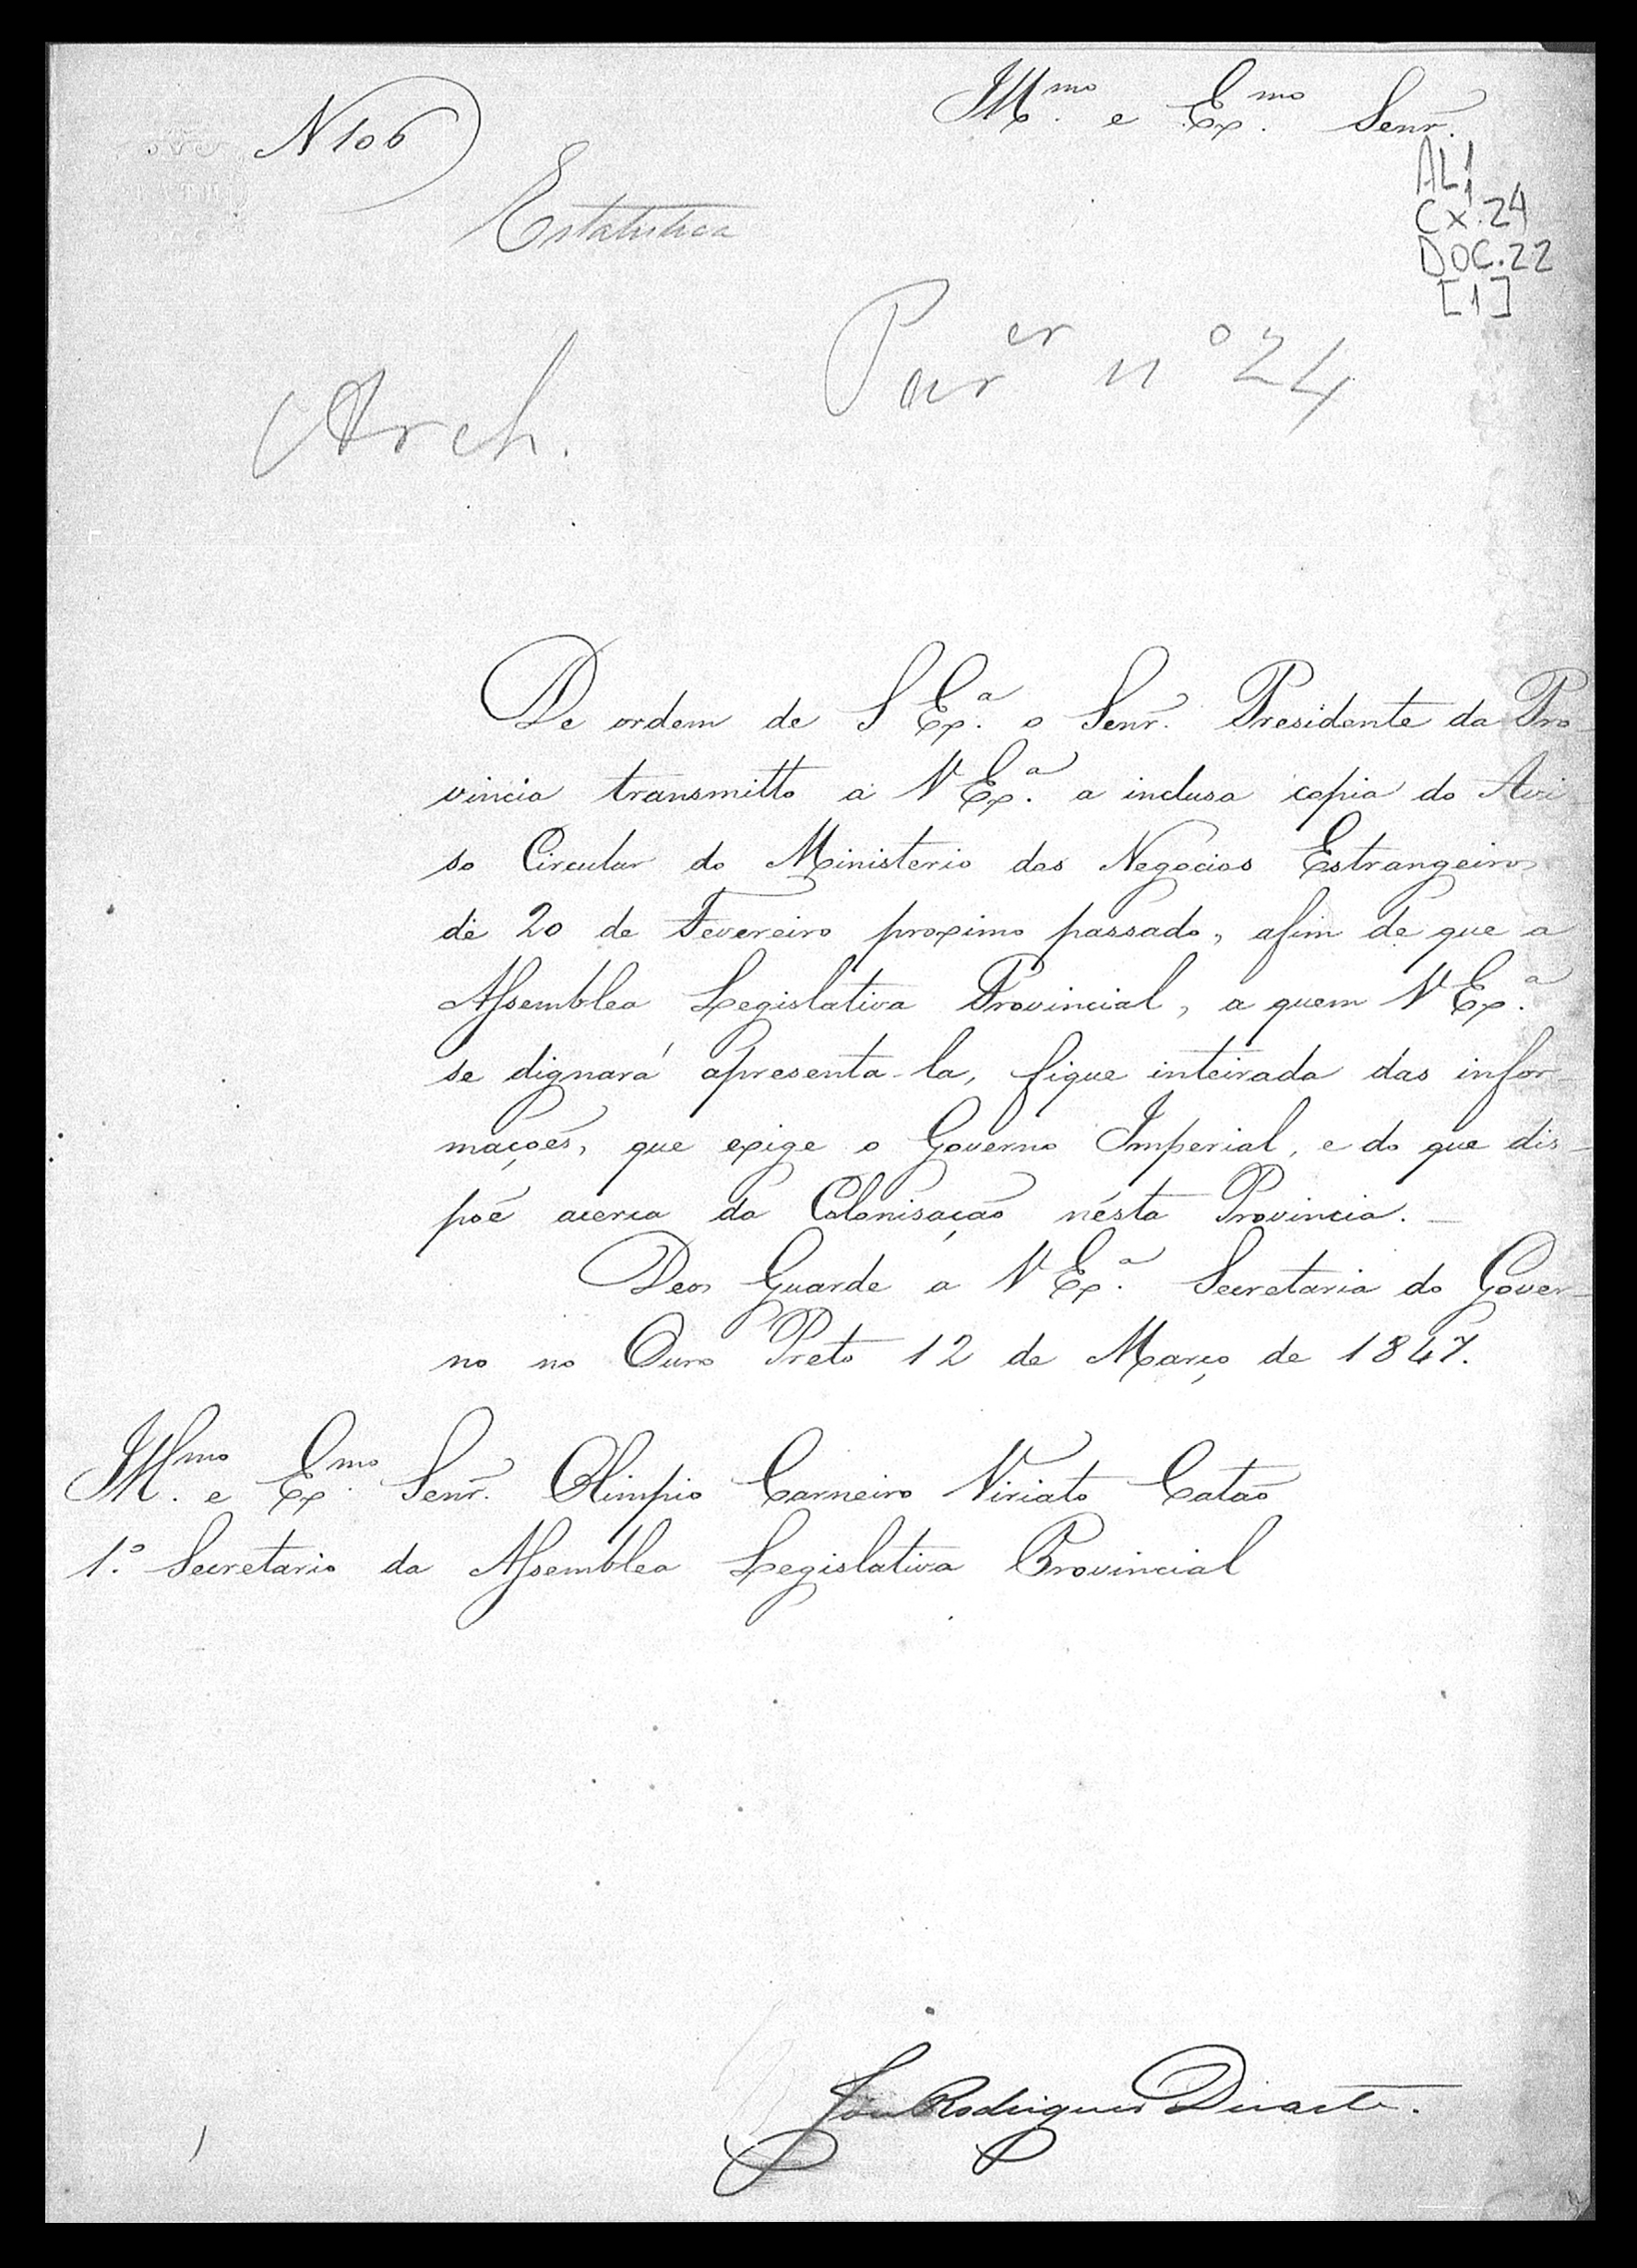 Illmo. e Exmo. Senr.
N 106
AL1
CX.24
DOC.22
[1]
Estatistica
Parer nº 24
Arch.
De ordem de S Exª. o Senr. Presidente da Pro
vincia transmitto a V Exª. a inclusa copia do Avi
so Circular do Ministerio dos Negocios Estrangeiros
de 20 de Fevereiro proximo passado, afim de que a
Assemblea Legislativa Provincial, a quem V Exª.
se dignará apresenta-la, fique inteirada das infor-
mações, que exige o Governo Imperial, e do que dis-
põe acerca da Colonisação nésta Provincia.
Deos Guarde a V Exª. Secretaria do Gover-
no no Ouro Preto 12 de Março de 1847.
Illmo. e Exmo. Senr. Olimpio Carneiro Viriato Catão
1.º Secretario da Assemblea Legislativa Provincial
José Rodrigues Duarte.